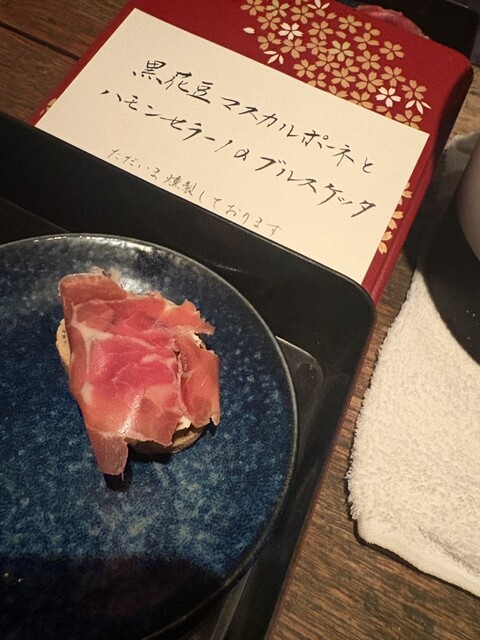 黒花豆 マスカルポーネと
ハモンセラーノのブルスケッタ
ただいま燻製しております